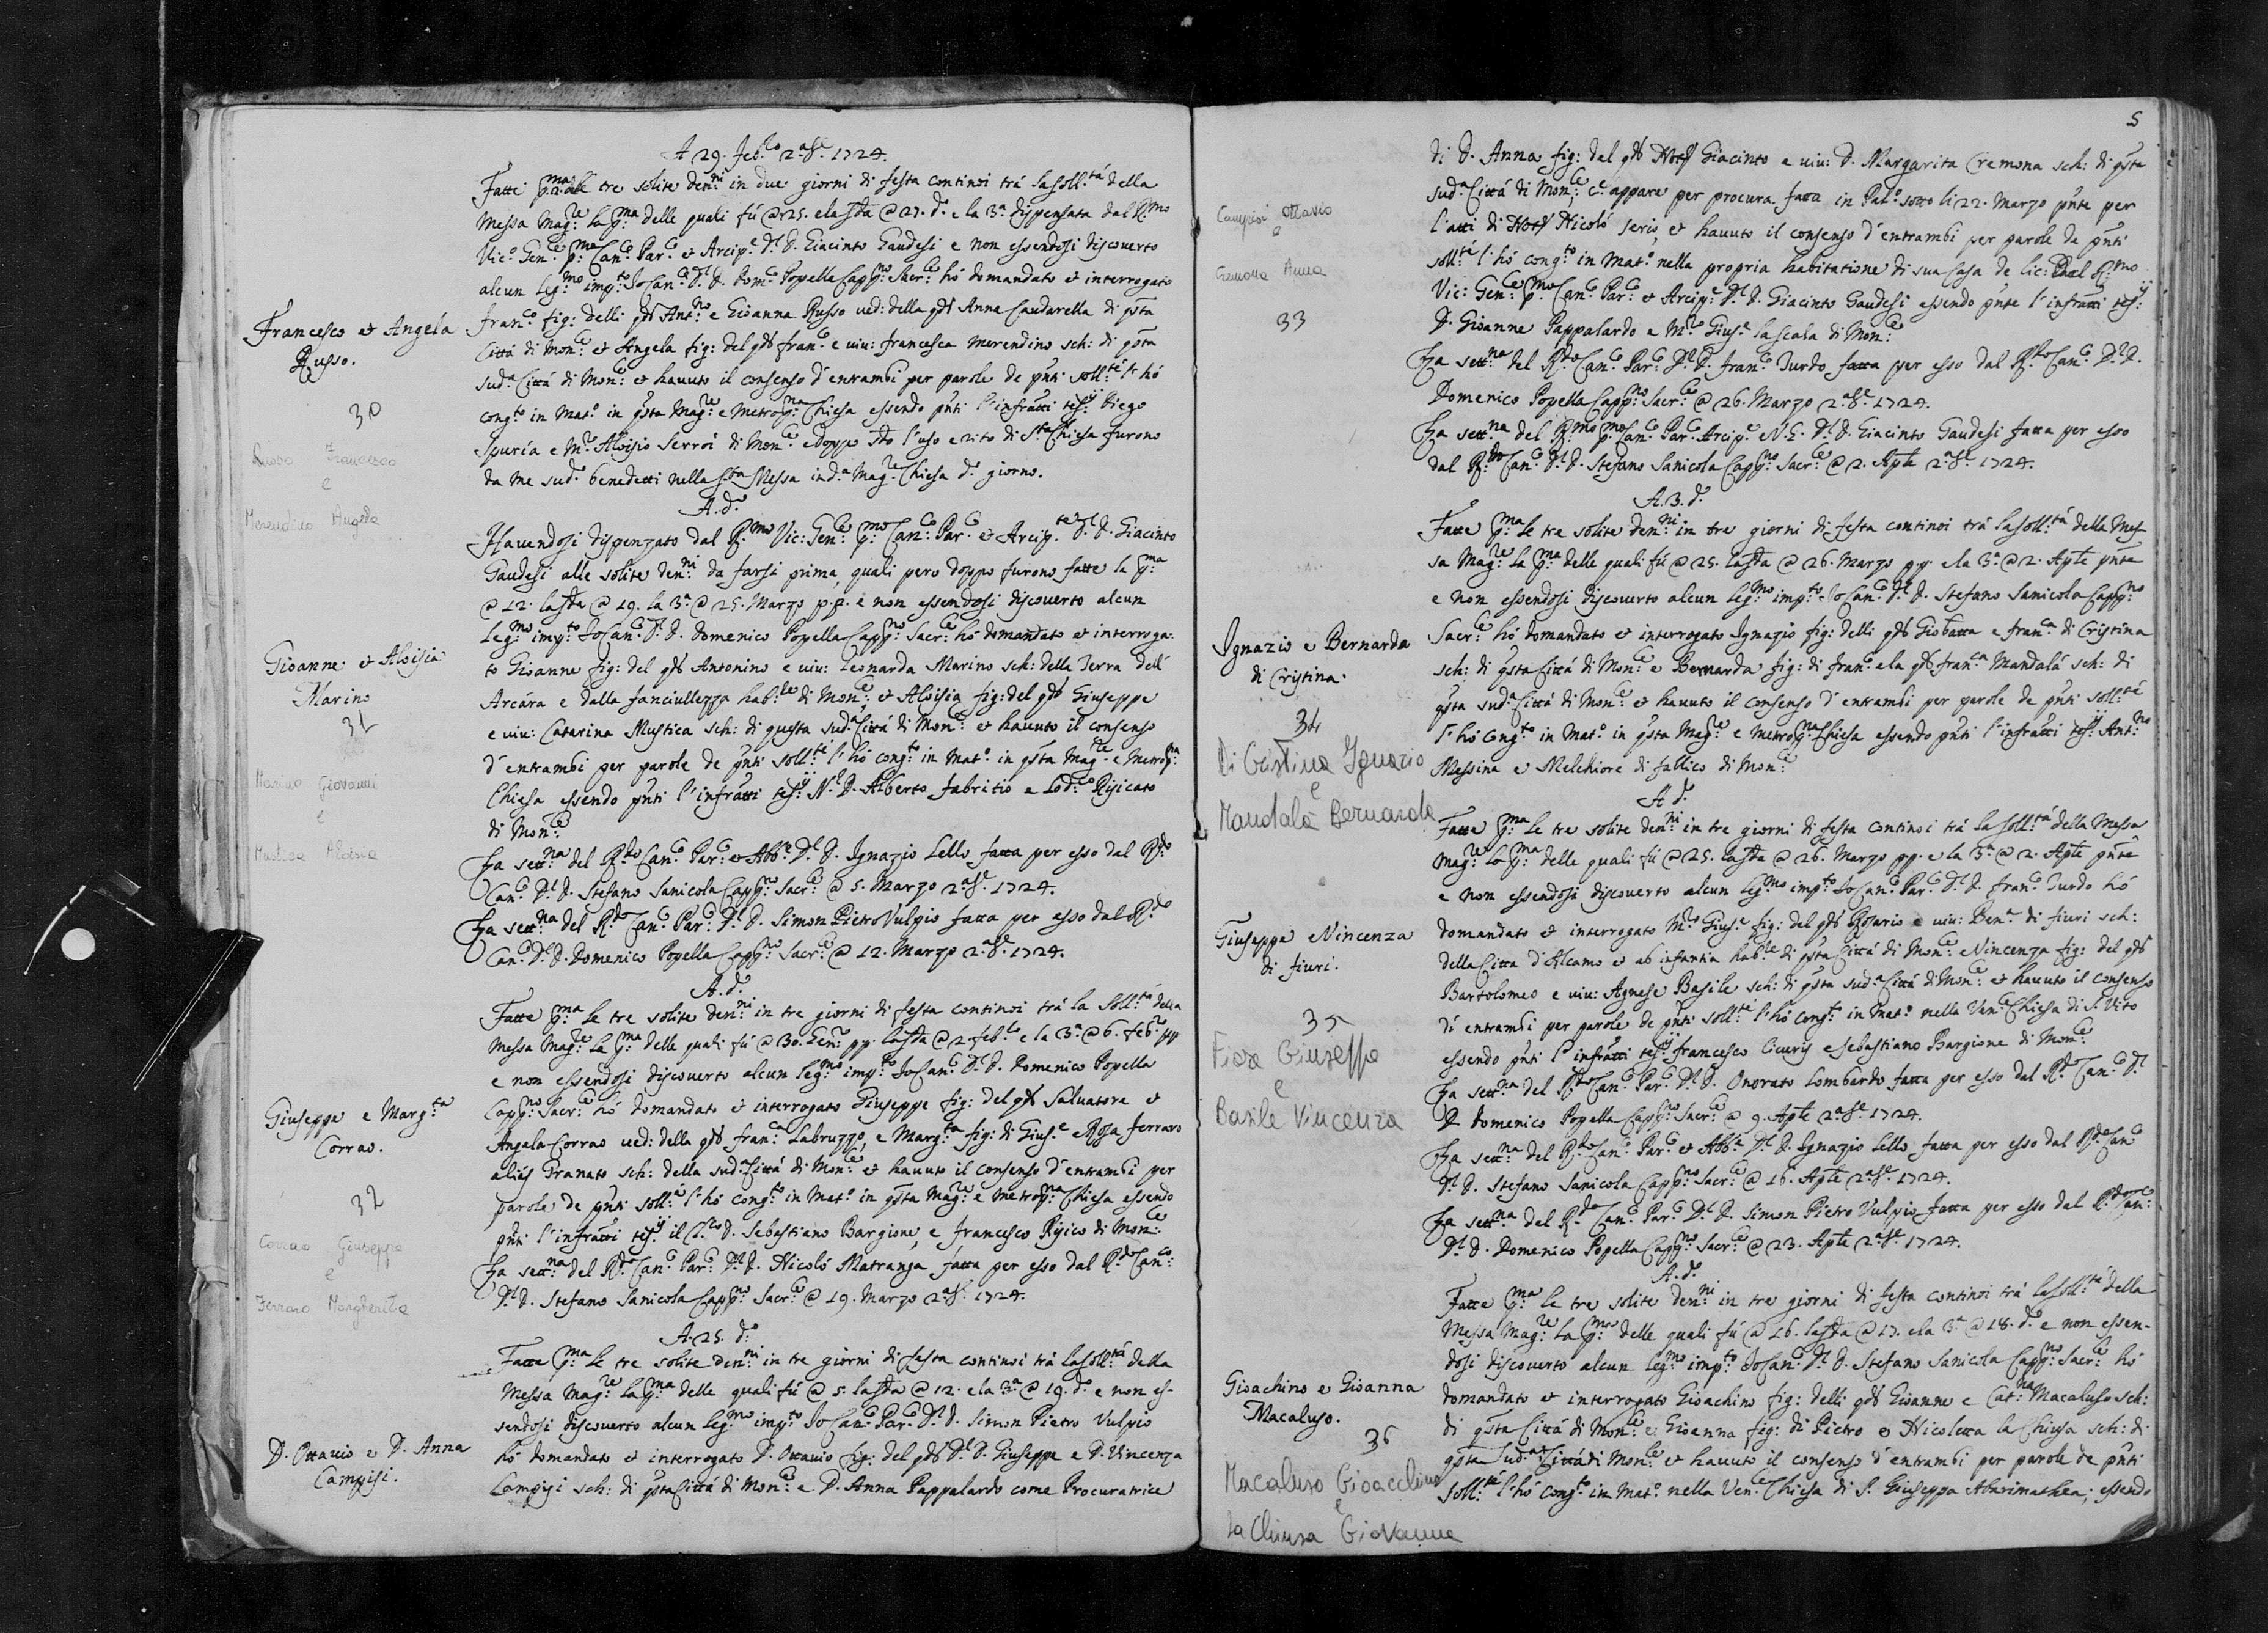 A 29. Feb.ro 2.a Ind.e 1724.
Fatte p.ma le tre solite den.ni in due giorni di festa continoi trà la soll.tà della
Messa Mag.re la p.ma delle quali fù @ 25. e la 2da @ 27. d.o e la 3.a dispensata dal R.mo
Vic.o Gen.le p.mo Can.co Par.co et Arcip.e D.r D. Giacinto Gaudesi e non essendosi discouerto
alcun leg.mo imp.to Io Can.co D.r D. Dom.co Popella Capp.no Sacr.le hò domandato et interrogato
Francesco et Angela
Russo.
Fran.co fig: delli qdm Ant.no e Gioanna Russo ued: della qdm Anna Caudarella di qsta
Città di Mon.le et Angela fig: del qdm Fran.co e uiu: Francesca Merendino sch: di qsta
sud.a Città di Mon.le et hauuto il consenso d'entrambi per parole de pnti soll.te l'hò
30
cong.to in Mat.o in qsta Mag.re e Metrop.na Chiesa essendo pnti l'infratti tes.ij Diego
Spuria e M.ro Aloisio Serroi di Mon.le e doppo sdo l'uso e rito di S.ta Chiesa furono
da me sud.o benedetti nella S.ta Messa in d.a Mag.re Chiesa d.o giorno.
Russo Francesco
e
Merendino Angela
A. d.o
Hauendosi dispenzato dal R.mo Vic: Gen.le p.mo Can.co Par.co et Arcip.te D.r D. Giacinto
Gaudesi alle solite den.ni da farsi prima, quali pero doppo furono fatte la p.ma
@ 12. la 2da @ 19. la 3.a @ 25. Marzo p.p. e non essendosi discouerto alcun
leg.mo imp.to Io Can.co D.r D. Domenico Popella Capp.no Sacr.le hò domandato et interroga-
Gioanne et Aloisia
Marino
31
to Gioanne fig: del qdm Antonino e uiu: Leonarda Marino sch: della Terra dell'
Arcara e dalla fanciullezza hab.le di Mon.le, et Aloisia fig: del qdm Giuseppe
e uiu: Catarina Mustica sch: di questa sud.a Città di Mon.le et hauuto il consenso
d'entrambi per parole de pnti soll.te l'hò cong.to in Mat.o in qsta Mag.re e Metrop.na
Chiesa essendo pnti l'infratti tes.ij N.r D. Alberto Fabritio e Lod.co Risicato
di Mon.le
Marino Giovanni
e
Mustica Aloisia
La sett.na del R.do Can.co Par.co et Abb.e D.r D. Ignazio Lello fatta per esso dal R.do
Can.co D.r D. Stefano Sanicola Capp.no Sacr.le @ 5. Marzo 2.a Ind.e 1724.
La sett.na del R.do Can.co Par.co D.r D. Simon Pietro Vulpio fatta per esso dal R.do
Can.co D.r D. Domenico Popella Capp.no Sacr.le @ 12. Marzo 2.a Ind.e 1724.
A. d.o
Fatte p.ma le tre solite den.ni in tre giorni di festa continoi trà la Soll.tà della
Messa Mag.re la p.ma delle quali fù @ 30. Gen.ro pp. la 2da @ 2. Feb.ro e la 3.a @ 6. Feb.ro pp
e non essendosi discouerto alcun leg.mo imp.to Io Can.co D.r D. Domenico Popella
Giuseppe e Marg.ta
Corrao.
Capp.no Sacr.le hò domandato et interrogato Giuseppe fig: del qdm Saluatore et
Angela Corrao ued: della qdm Fran.ca Labruzzo, e Marg.ta fig: di Gius.e e Rosa Ferraro
aliàs Pranato sch: della sud.a Città di Mon.le et hauuto il consenso d'entrambi per
parole de pnti soll.te l'hò cong.to in Mat.o in qsta Mag.re e Metrop.na Chiesa essendo
pnti l'infratti tes.ij il Cl.co D. Sebastiano Bargione, e Francesco Risico di Mon.le
32
Corrao Giuseppe
e
Ferraro Margherita
La sett.na del R.do Can.co Par.co D.r D. Nicolò Matranga fatta per esso dal R.do Can.co
D.r D. Stefano Sanicola Capp.no Sacr.le @ 19. Marzo 2.a Ind.e 1724.
A. 25. d.o
Fatte p.ma le tre solite den.ni in tre giorni di festa continoi trà la soll.tà della
Messa Mag.re la p.ma delle quali fù @ 5. la 2da @ 12. e la 3.a @ 19. d.o e non es-
sendosi discouerto alcun leg.mo imp.to Io Can.co Par.co D.r D. Simon Pietro Vulpio
D. Ottauio e D. Anna
Campisi.
hò domandato et interrogato D. Ottauio fig: del qdm D.r D. Giuseppe e D. Vincenza
Campisi sch: di qsta Città di Mon.le e D. Anna Pappalardo come Procuratrice
5
di D. Anna fig: del qdm Not.r Giacinto e uiu: D. Margarita Cremona sch: di qsta
sud.a Città di Mon.le, c.e appare per procura fatta in Pal.o sotto li 22. Marzo pnte per
Campisi Ottavio
e
Cremona Anna
33
l'atti di Not.r Nicolò Serio, et hauuto il consenso d'entrambi per parole de pnti
soll.te l'hò cong.to in Mat.o nella propria habitatione di sua Casa de lic: del R.mo
Vic: Gen.le p.mo Can.co Par.co et Arcip.e D.r D. Giacinto Gaudesi essendo pnte l'infratti tes.ij
D. Gioanne Pappalardo e M.ro Gius.e la Scala di Mon.le
La sett.na del R.do Can.co Par.co D.r D. Fran.co Turdo fatta per esso dal R.do Can.co D.r D.
Domenico Popella Capp.no Sacr.le @ 26. Marzo 2.a Ind.e 1724.
La sett.na del R.mo p.mo Can.co Par.co Arcip.e V.G. D.r D. Giacinto Gaudesi fatta per esso
dal R.do Can.co D.r D. Stefano Sanicola Capp.no Sacr.le @ 2. Aple 2.a Ind.e 1724.
A. 3. d.o
Fatte p.ma le tre solite den.ni in tre giorni di festa continoi trà la soll.tà della Mes-
sa Mag.re la p.ma delle quali fù @ 25. la 2da @ 26. Marzo pp. e la 3.a @ 2. Aple pnte
e non essendosi discouerto alcun leg.mo imp.to Io Can.co D.r D. Stefano Sanicola Capp.no
Ignazio e Bernarda
di Cristina.
Sacr.le hò domandato et interrogato Ignazio fig: delli qdm Giobatta e Fran.ca di Cristina
sch: di qsta Città di Mon.le e Bernarda fig: di Fran.co e la qdm Fran.ca Mandalà sch: di
qsta sud.a Città di Mon.le et hauuto il consenso d'entrambi per parole de pnti soll.te
l'hò cong.to in Mat.o in qsta Mag.re e Metrop.na Chiesa essendo pnti l'infratti tes.ij Ant.no
Messina et Melchiore di Fallico di Mon.le
34
Di Cristina Ignazio
e
Mandalà Bernarda
A d.o
Fatte p.ma le tre solite den.ni in tre giorni di festa continoi trà la soll.tà della Messa
Mag.re la p.ma delle quali fù @ 25. la 2da @ 26. Marzo pp. e la 3.a @ 2. Aple pnte
e non essendosi discouerto alcun leg.mo imp.to Io Can.co Par.co D.r D. Fran.co Turdo hò
Giuseppe e Vincenza
di Fiuri.
domandato et interrogato M.ro Gius.e fig: del qdm Rosario e uiu: Ben.a di Fiuri sch:
della Città d'Alcamo et ab infantia hab.le di qsta Città di Mon.le e Vincenza fig: del qdm
Bartolomeo e uiu: Agnese Basile sch: di qsta sud.a Città di Mon.le et hauuto il consenso
di entrambi per parole de pnti soll.te l'hò cong.to in Mat.o nella Ven.le Chiesa di S. Vito
essendo pnti l'infratti tes.ij Francesco Ciceris e Sebastiano Bargione di Mon.le
35
Fiore Giuseppe
e
Basile Vincenza
La sett.na del R.do Can.co Par.co D.r D. Onorato Lombardo fatta per esso dal R.do Can.co D.r
D. Domenico Popella Capp.no Sacr.le @ 9. Aple 2.a Ind.e 1724.
La sett.na del R.do Can.co Par.co et Abb.e D.r D. Ignazio Lello fatta per esso dal R.do Can.co
D.r D. Stefano Sanicola Capp.no Sacr.le @ 16. Aple 2.a Ind.e 1724.
La sett.na del R.do Can.co Par.co D.r D. Simon Pietro Vulpio fatta per esso dal R.do Can.co
D.r D. Domenico Popella Capp.no Sacr.le @ 23. Aple 2.a Ind.e 1724.
A. d.o
Fatte p.ma le tre solite den.ni in tre giorni di festa continoi trà la soll.tà della
Messa Mag.re la p.ma delle quali fù @ 16. la 2da @ 17. e la 3.a @ 18. d.o e non essen-
dosi discouerto alcun leg.mo imp.to Io Can.co D.r D. Stefano Sanicola Capp.no Sacr.le hò
Gioachino e Gioanna
Macaluso.
domandato et interrogato Gioachino fig: delli qdm Gioanne e Cat.na Macaluso sch:
di qsta Città di Mon.le e Gioanna fig: di Pietro e Nicoletta la Chiusa sch: di
qsta sud.a Città di Mon.le et hauuto il consenso d'entrambi per parole de pnti
soll.te l'hò cong.to in Mat.o nella Ven.le Chiesa di S. Giuseppe Abarimathea; essendo
36
Macaluso Gioacchino
e
La Chiusa Giovanna